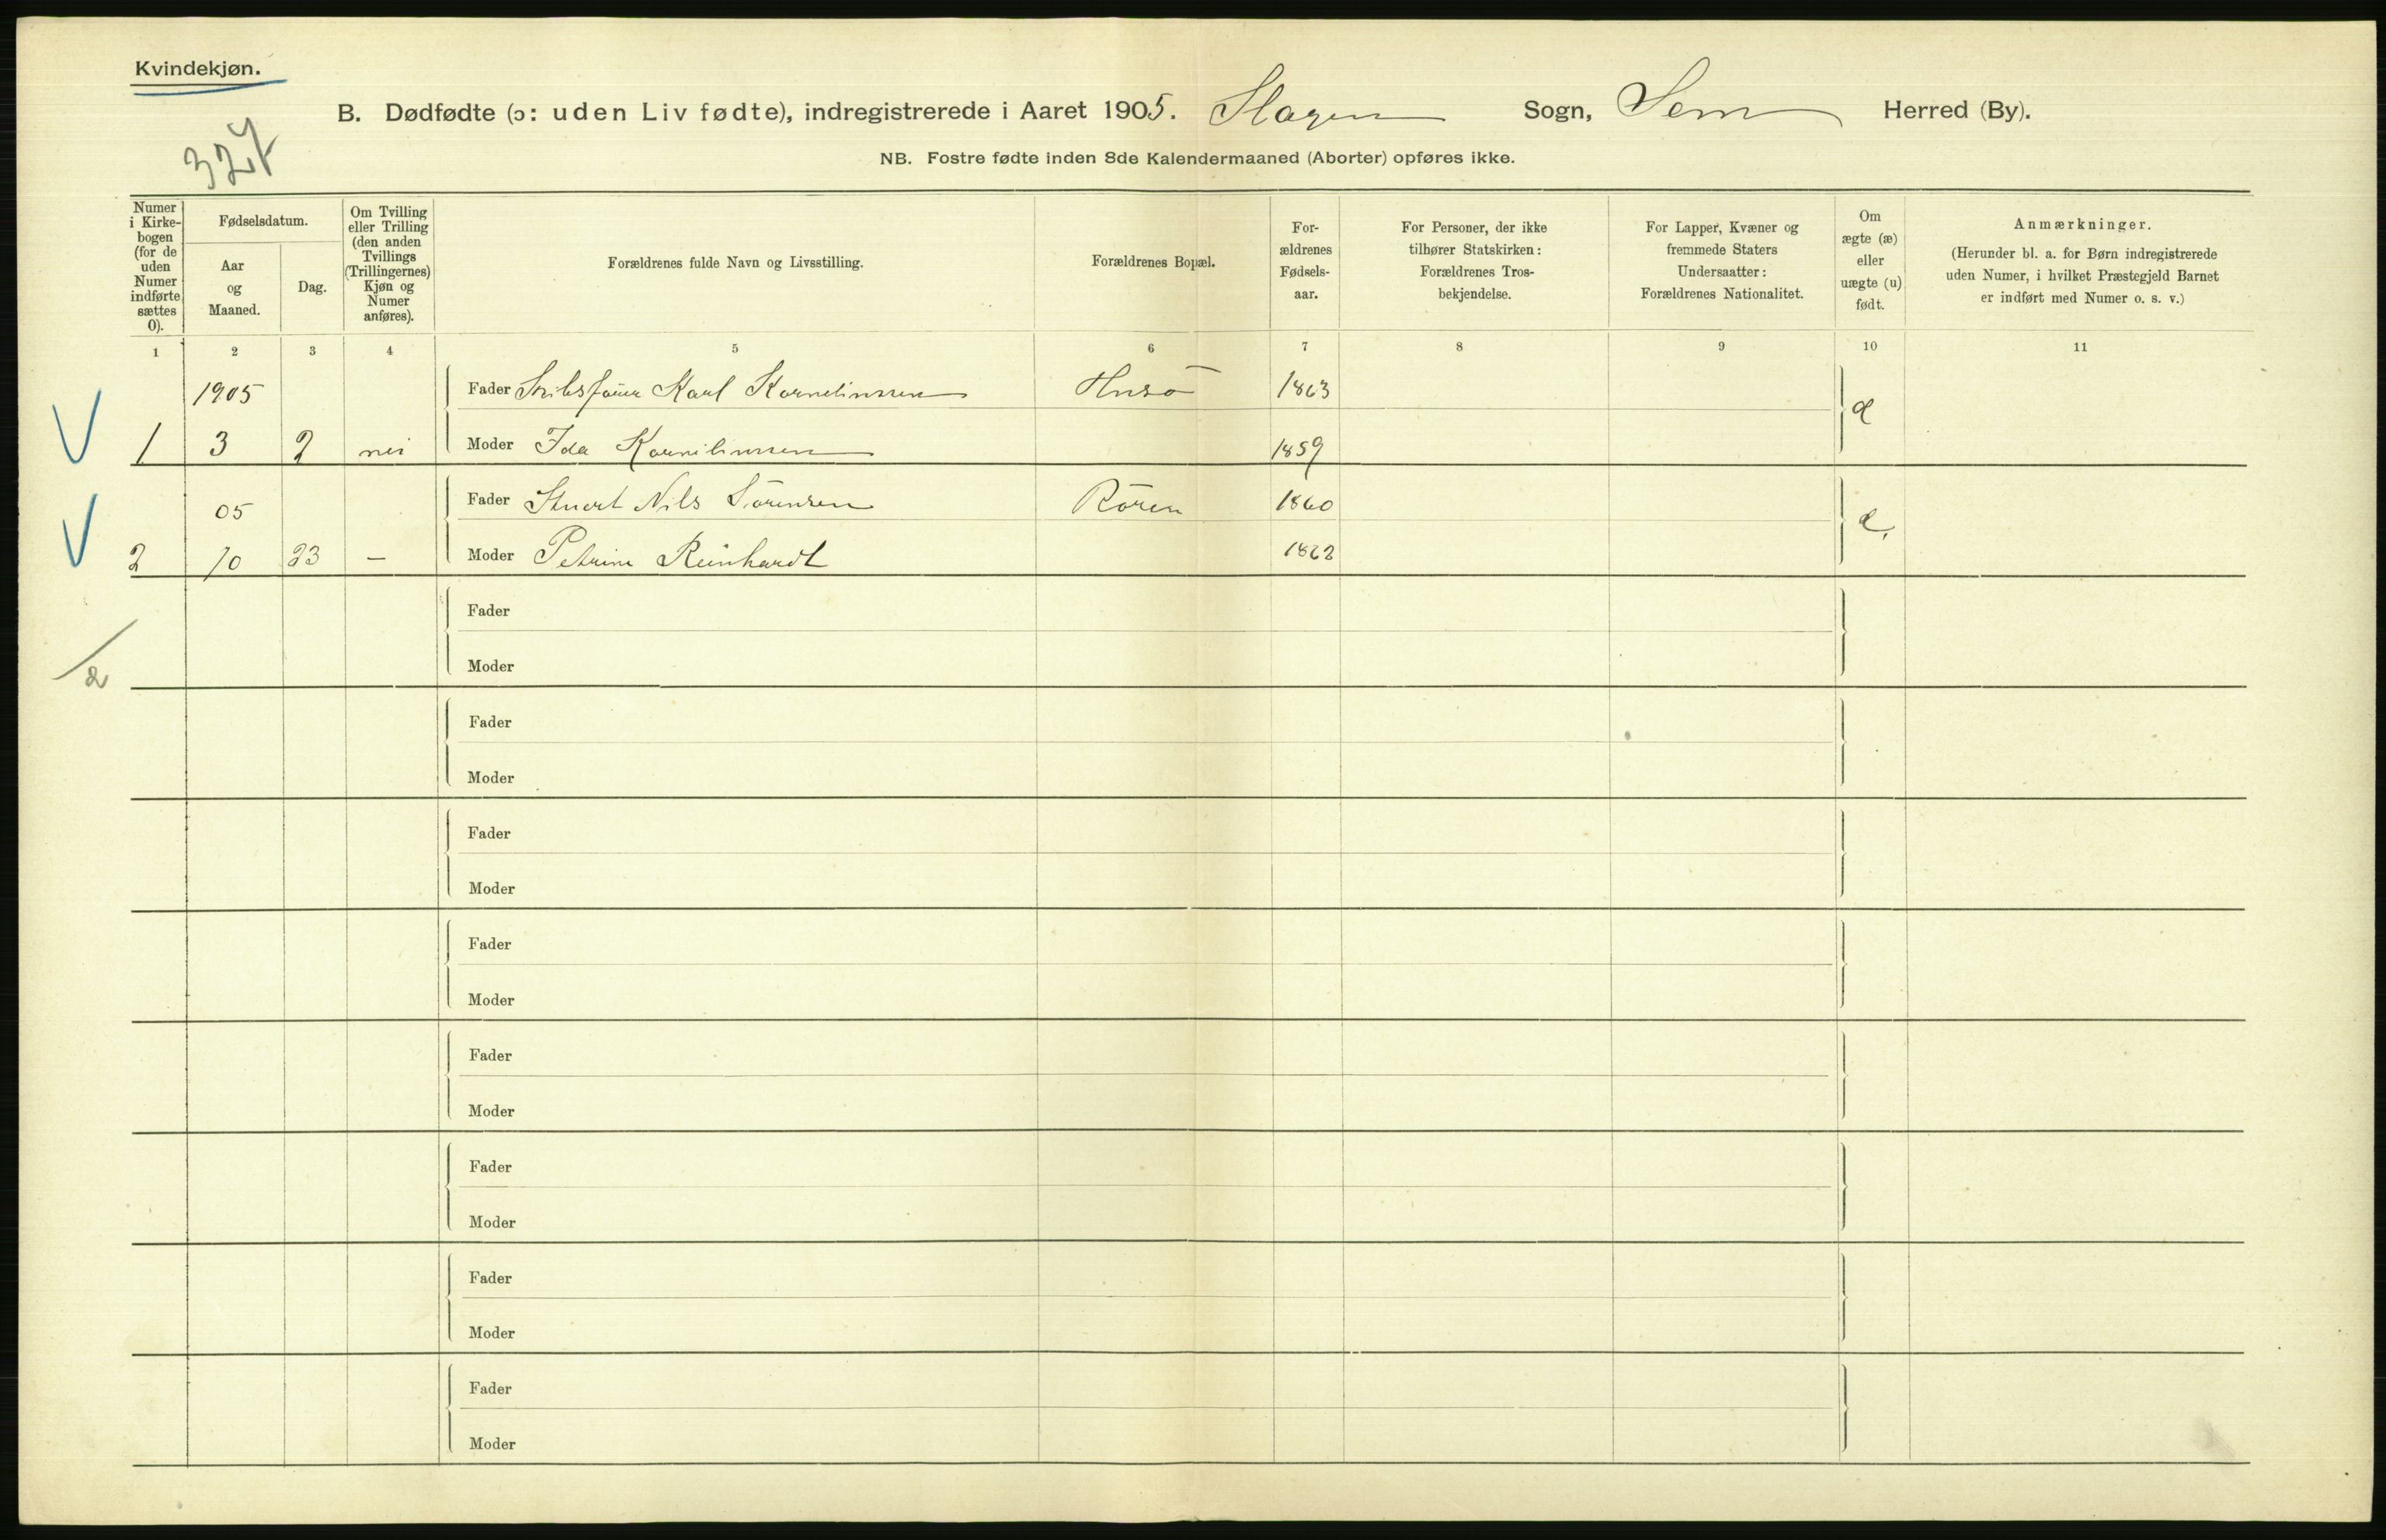 Kvindekjøn.
B. Dødfødte (ɔ: uden Liv fødte), indregistrerede i Aaret 1905. Slagen Sogn, Sem Herred (By).
327
NB. Fostre fødte inden 8de Kalendermaaned (Aborter) opføres ikke.
Numer i Kirkebogen (for de uden Numer indførte sættes 0).
Fødselsdatum.
Aar og Maaned.
Dag.
Om Tvilling eller Trilling (den anden Tvillings (Trillingernes) Kjøn og Numer anføres).
Forældrenes fulde Navn og Livsstilling.
Forældrenes Bopæl.
For-ældrenes Fødsels-aar.
For Personer, der ikke tilhører Statskirken: Forældrenes Tros-bekjendelse.
For Lapper, Kvæner og fremmede Staters Undersaatter: Forældrenes Nationalitet.
Om ægte (æ) eller uægte (u) født.
Anmærkninger.
(Herunder bl. a. for Børn indregistrerede uden Numer, i hvilket Præstegjeld Barnet er indført med Numer o. s. v.)
1 2 3 4 5 6 7 8 9 10 11
1905 Fader Skibsfører Karl Kornelinssen Husø 1863 æ
1 3 2 nei Moder Ida Kornilinssen 1859
05 Fader Stuert Nils Sörensen Rören 1860 æ.
2 10 23 — Moder Petrine Reinhardt 1862
Fader
2
Moder
Fader
Moder
Fader
Moder
Fader
Moder
Fader
Moder
Fader
Moder
Fader
Moder
Fader
Moder